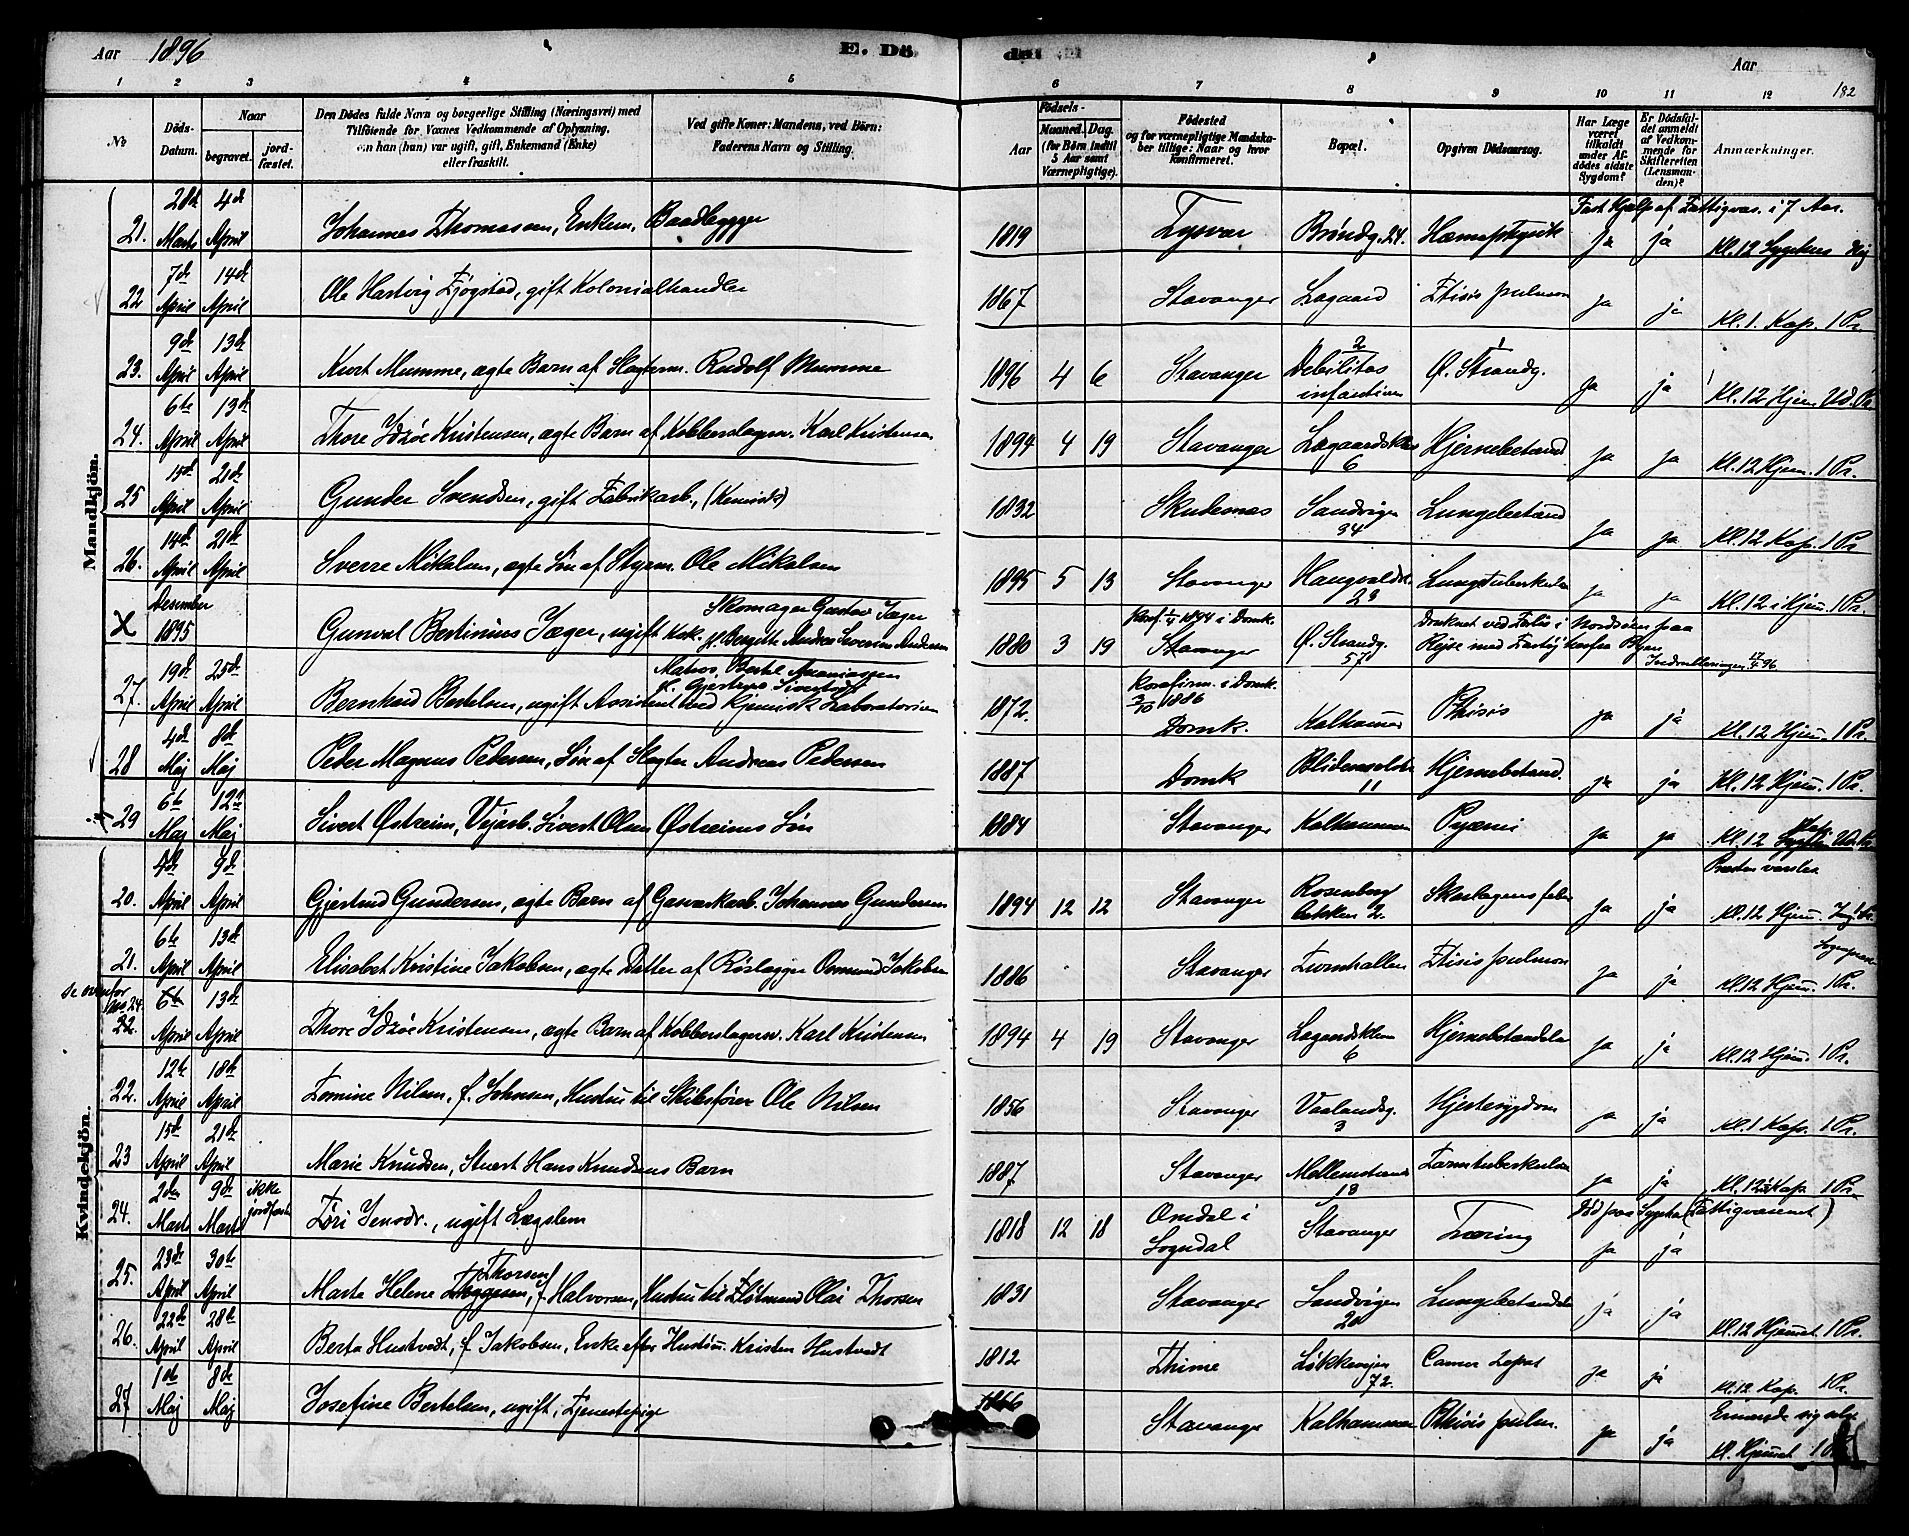 Aar 1896
E. Dö
de
Aar
182
1 2 3 4 5 6 7 8 9 10 11 12
No
Döds-Datum.
Naar
begravet.
jord-fæstet.
Den Dödes fulde Navn og borgerlige Stilling (Næringsvei) med
Tilföiende for Voxnes Vedkommende af Oplysning,
om han (hun) var ugift, gift, Enkemand (Enke)
eller fraskilt.
Ved gifte Koner: Mandens, ved Börn:
Faderens Navn og Stilling.
Födsels-
Aar
Maaned. Dag.
(for Børn indtil
5 Aar samt
Værnepligtige).
Födested
og for værnepligtige Mandska-
ber tillige: Naar og hvor
konfirmeret.
Bopæl.
Opgiven Dödsaarsag.
Har Læge
været
tilkaldt
under Af-
dödes sidste
Sygdom?
Er Dödsfal-
det anmeldt
af Vedkom-
mende for
Skifteretten
(Lensman-
den)?
Anmærkninger.
Mandkjön.
21. 28de Marts 4de April Johannes Thomassen, Enkem, Baadbygger 1819 Tysvær Brøndg. 24. Hæmoptysik ja ja Fast Hjælp af Fattigvæs. i 7 Aar. Kl. 12 Sygehus
22 7de April 14de April Ole Hartvig Tjøgstad, gift Kolonialhandler 1867 Stavanger Lagaard Ftisis pulmon ja ja Kl. 1. Kap. 1 Pr.
23. 9de April 13de April Kurt Mumme, ægte Barn af Slagterm. Rudolf Mumme 1896 4 6 Stavanger Debilitas infantium 2 1 Ø. Strandg. ja ja Kl. 12 Hjem. Ud. Pr.
24. 6te April 13de April Thore Idsøe Kristensen, ægte Barn af Kobberslagersv. Karl Kristensen 1894 4 19 Stavanger Lagaardskleven 6 Hjernebetænd ja ja Kl. 12 Hjem. 1 Pr.
25 15de April 21de April Gunder Svendsen, gift Fabrikarb., (Kemisk) 1832 Skudesnæs Sandvigen 34 Lungebetænd ja ja Kl. 12 Kap. 1 Pr
26. 14de April 21de April Sverre Mikalsen, ægte Søn af Styrm. Ole Mikalsen 1895 5 13 Stavanger Haugvaldst. 23 Lungetuberkulose ja ja Kl. 12 i Hjem. 1 Pr.
X Desember 1895 Gunval Bertinius Jæger, ugift Kok. Skomager Gustav Jæger f. Bergitte Andrea Severine Andersen 1880 3 19 Konf. 1894 i Domk. Stavanger Ø. Strandg. 57 Druknet ved Forlis i Nordsøen paa Rejse med Fartøj herfra Byen Indrulleringen 17/4 96
27. 19de April 25de April Bernhard Bertelsen, ugift Assistent ved Kjemisk Laboratorium Matros Bertel Ananiassen 1872. Konfirm. i Domk. 3/10 1886 Domk. Kalhammer Phisis ja ja Kl. 12 Hjem. 1 Pr.
28 4de Maj 8de Maj Peder Magnus Pedersen, Søn af Slagter Andreas Pedersen 1887 Domk Blidensolstr 11 Hjernebetænd. ja ja Kl. 12 Hjem. 1 Pr.
29 6te Maj 12te Maj Sivert Østreim, Vejarb. Sivert Olsen Østreims Søn 1884 Stavanger Kalhammer Pyæmi ja ja Kl. 12
Kvindekjön.
20. 4de April 9de April Gjertrud Gundersen, ægte Barn af Gasværkarb. Johannes Gundersen 1894 12 12 Stavanger Rosenberg bakken 2. Skarlagensfeber ja ja Presten varsles Kl. 12 Hjem.
21. 6te April 13de April Elisabet Kristine Jakobsen, ægte Datter af Rørlægger Osmund Jakobsen 1886 Stavanger Turnhallen Ftisis pulmon ja ja Sogneprest Kl. 12 Hjem. 1 Pr.
Se ovenfor No 24. 22. 6te April 13de April Thore Idsøe Kristensen, ægte Barn af Kobberslagersv. Karl Kristensen 1894 4 19 Stavanger Lagaardskleven 6 Hjernebetændelse ja ja Kl. 12 Hjem. 1 Pr.
22. 12te April 18de April Tomine Nilsen, f. Johnsen, Hustru til Skibsfører Ole Nilsen 1856 Stavanger Vaalandsg. 3 Hjertesygdom ja ja Kl. 1 Kap. 1 Pr.
23 15de April 21de April Marie Knudsen, Stuert Hans Knudsens Barn 1887 Stavanger Mellemstrædet 18 Tarmtuberkulose ja ja Kl. 12 Kap. 1 Pr.
24. 2den Marts 9de Marts ikke jordfæstet Tøri Jensdr., ugift Lægslem 1818 12 18 Omdal i Sogndal Stavanger Tæring ja ja Død paa Sygehus (Fattigvæsenet)
25. 23de April 30te April Marte Helene Thorsen, f. Halvorsen, Hustru til Flötmand Olai Thorsen 1831 Stavanger Sandvigen 20 Lungebetændelse ja ja Kl. 12 Hjemmet 1 Pr.
26. 22de April 28de April Berta Hustvedt, f. Jakobsen, Enke efter Hustøm. Kristen Hustvedt 1812 Thime Løkkevejen 72. Cancer ja ja Kl. 12 Kap. 1 Pr.
27 1ste Maj 8de Maj Josefine Bertelsen, ugift, Tjenestepige 1866 Stavanger Kalhammer Phisis pulm. ja ja Ernærede sig selv Kl. Hjemmet 1 Pr